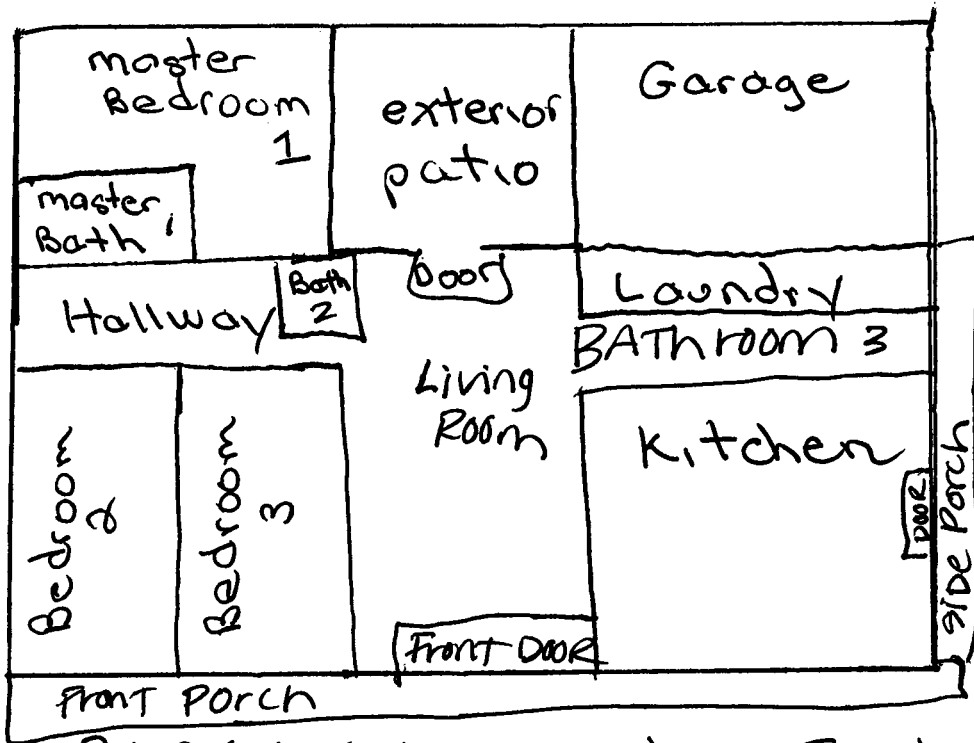 master
Bedroom
1
exterior
patio
Garage
master
Bath 1
Hallway
Bath
2
Door
Laundry
BAThroom 3
Living
Room
Kitchen
Bedroom
2
Bedroom
3
DOOR
Side Porch
Front DOOR
Front Porch